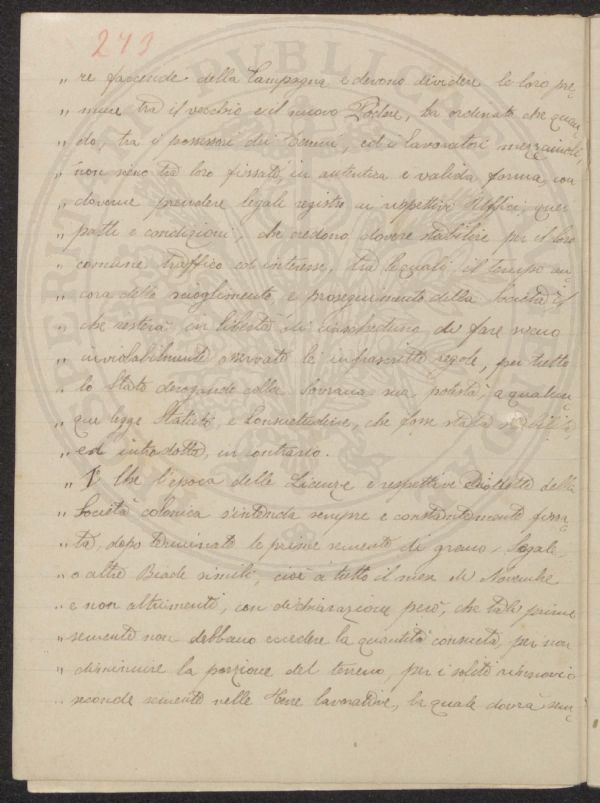 273
" re faccende della Campagna e devono dividere le loro pre=
" mure tra il vecchio e il nuovo Podere, ha ordinato che quan=
" do, tra i possessori dei Terreni, ed i lavoratori mezzaiuoli,
" non sieno tra loro fissati, in autentica e valida forma, con
" doverne prendere legale registro ai rispettivi Uffici, quei
" patti e condizioni, che credono dovere stabilire per il loro
" comune traffico ed interesse, tra le quali il tempo an=
" cora dello scioglimento e proseguimento della Società il
" che resterà in libertà di ciascheduno di fare, sieno
" inviolabilmente osservate le infrascritte regole, per tutto
" lo Stato derogando colla Sovrana sua potestà, a qualun=
" que legge Statuto, e Consuetudine, che fosse stata
" ed introdotta, in contrario.
" 1° Che l'epoca delle Licenze e respettive Disdette della
" Società colonica s'intenda sempre e constantemente fissa=
" ta, dopo terminate le prime semente di grano, Segale,
" o altre Biade simili, cioè a tutto il mese di Novembre
" e non altrimenti, con dichiarazione però, che tali prime
" semente non debbano eccedere la quantità consueta, per non
" diminuire la porzione del terreno, per i soliti rinnovi o
" seconde semente nelle Terre lavorative, la quale dovrà sem=
PERUGIA PUBLICI